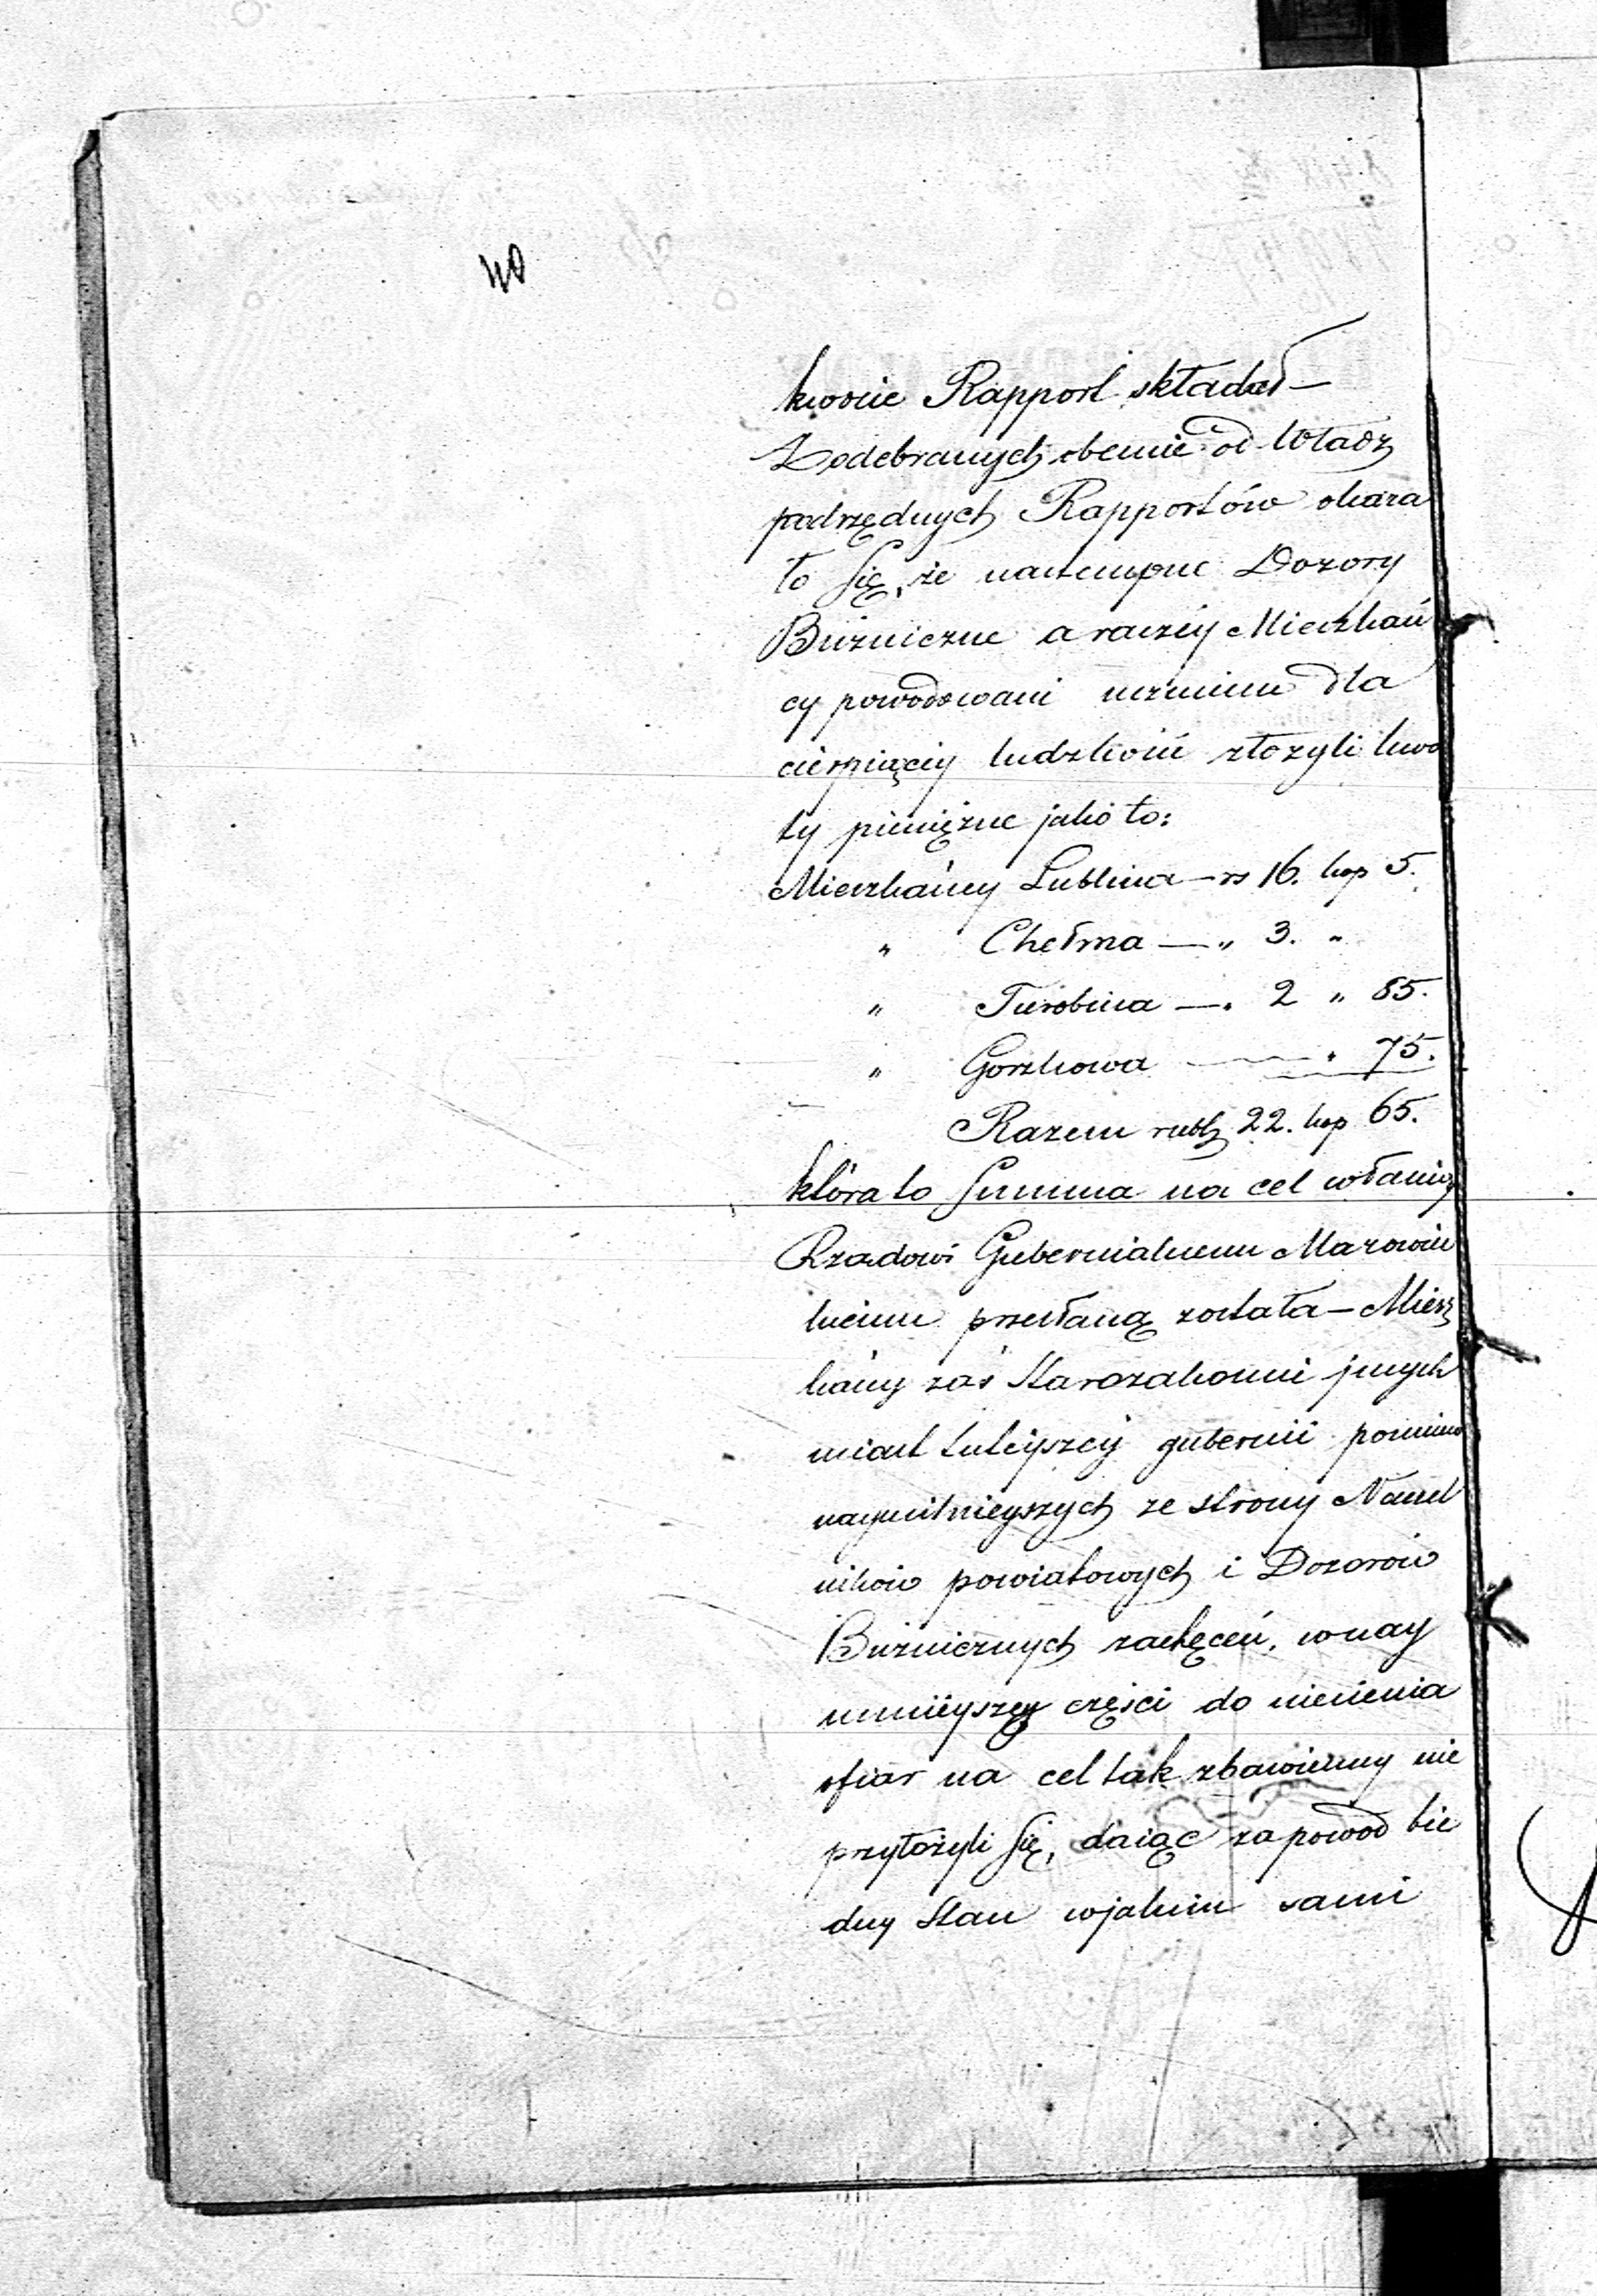 40
kwocie Rapport składał —
Z odebranych obecnie od Władz
podrzędnych Rapportów okaza
ło się, że następne Dozory
Bużniczne a raczéy Mieszkań
cy powodowani uczuciem dla
cierpiącéy ludzkości złożyli kwo
ty pieniężne jako to:
Mieszkańcy Lublina — rs 16. kop 5.
" Chełma — " 3. "
" Turobina — " 2 " 85.
" Gorzkowa — " 75.
Razem rubl 22. kop 65.
która to Summa na cel właściwy
Rządowi Gubernialnemu Mazowiec
kiemu przesłaną została — Miesz
kańcy zaś Starozakonni jnych
miast tuteyszéy gubernii pomimo
nayusilnieyszych ze strony Naczel
ników powiatowych i Dozorów
Bużnicznych zachęceń, w nay
mnieyszey części do niesienia
ofiar na cel tak zbawienny nie
przyłożyli się, daiąc za powod bie
dny stan w jakim sami